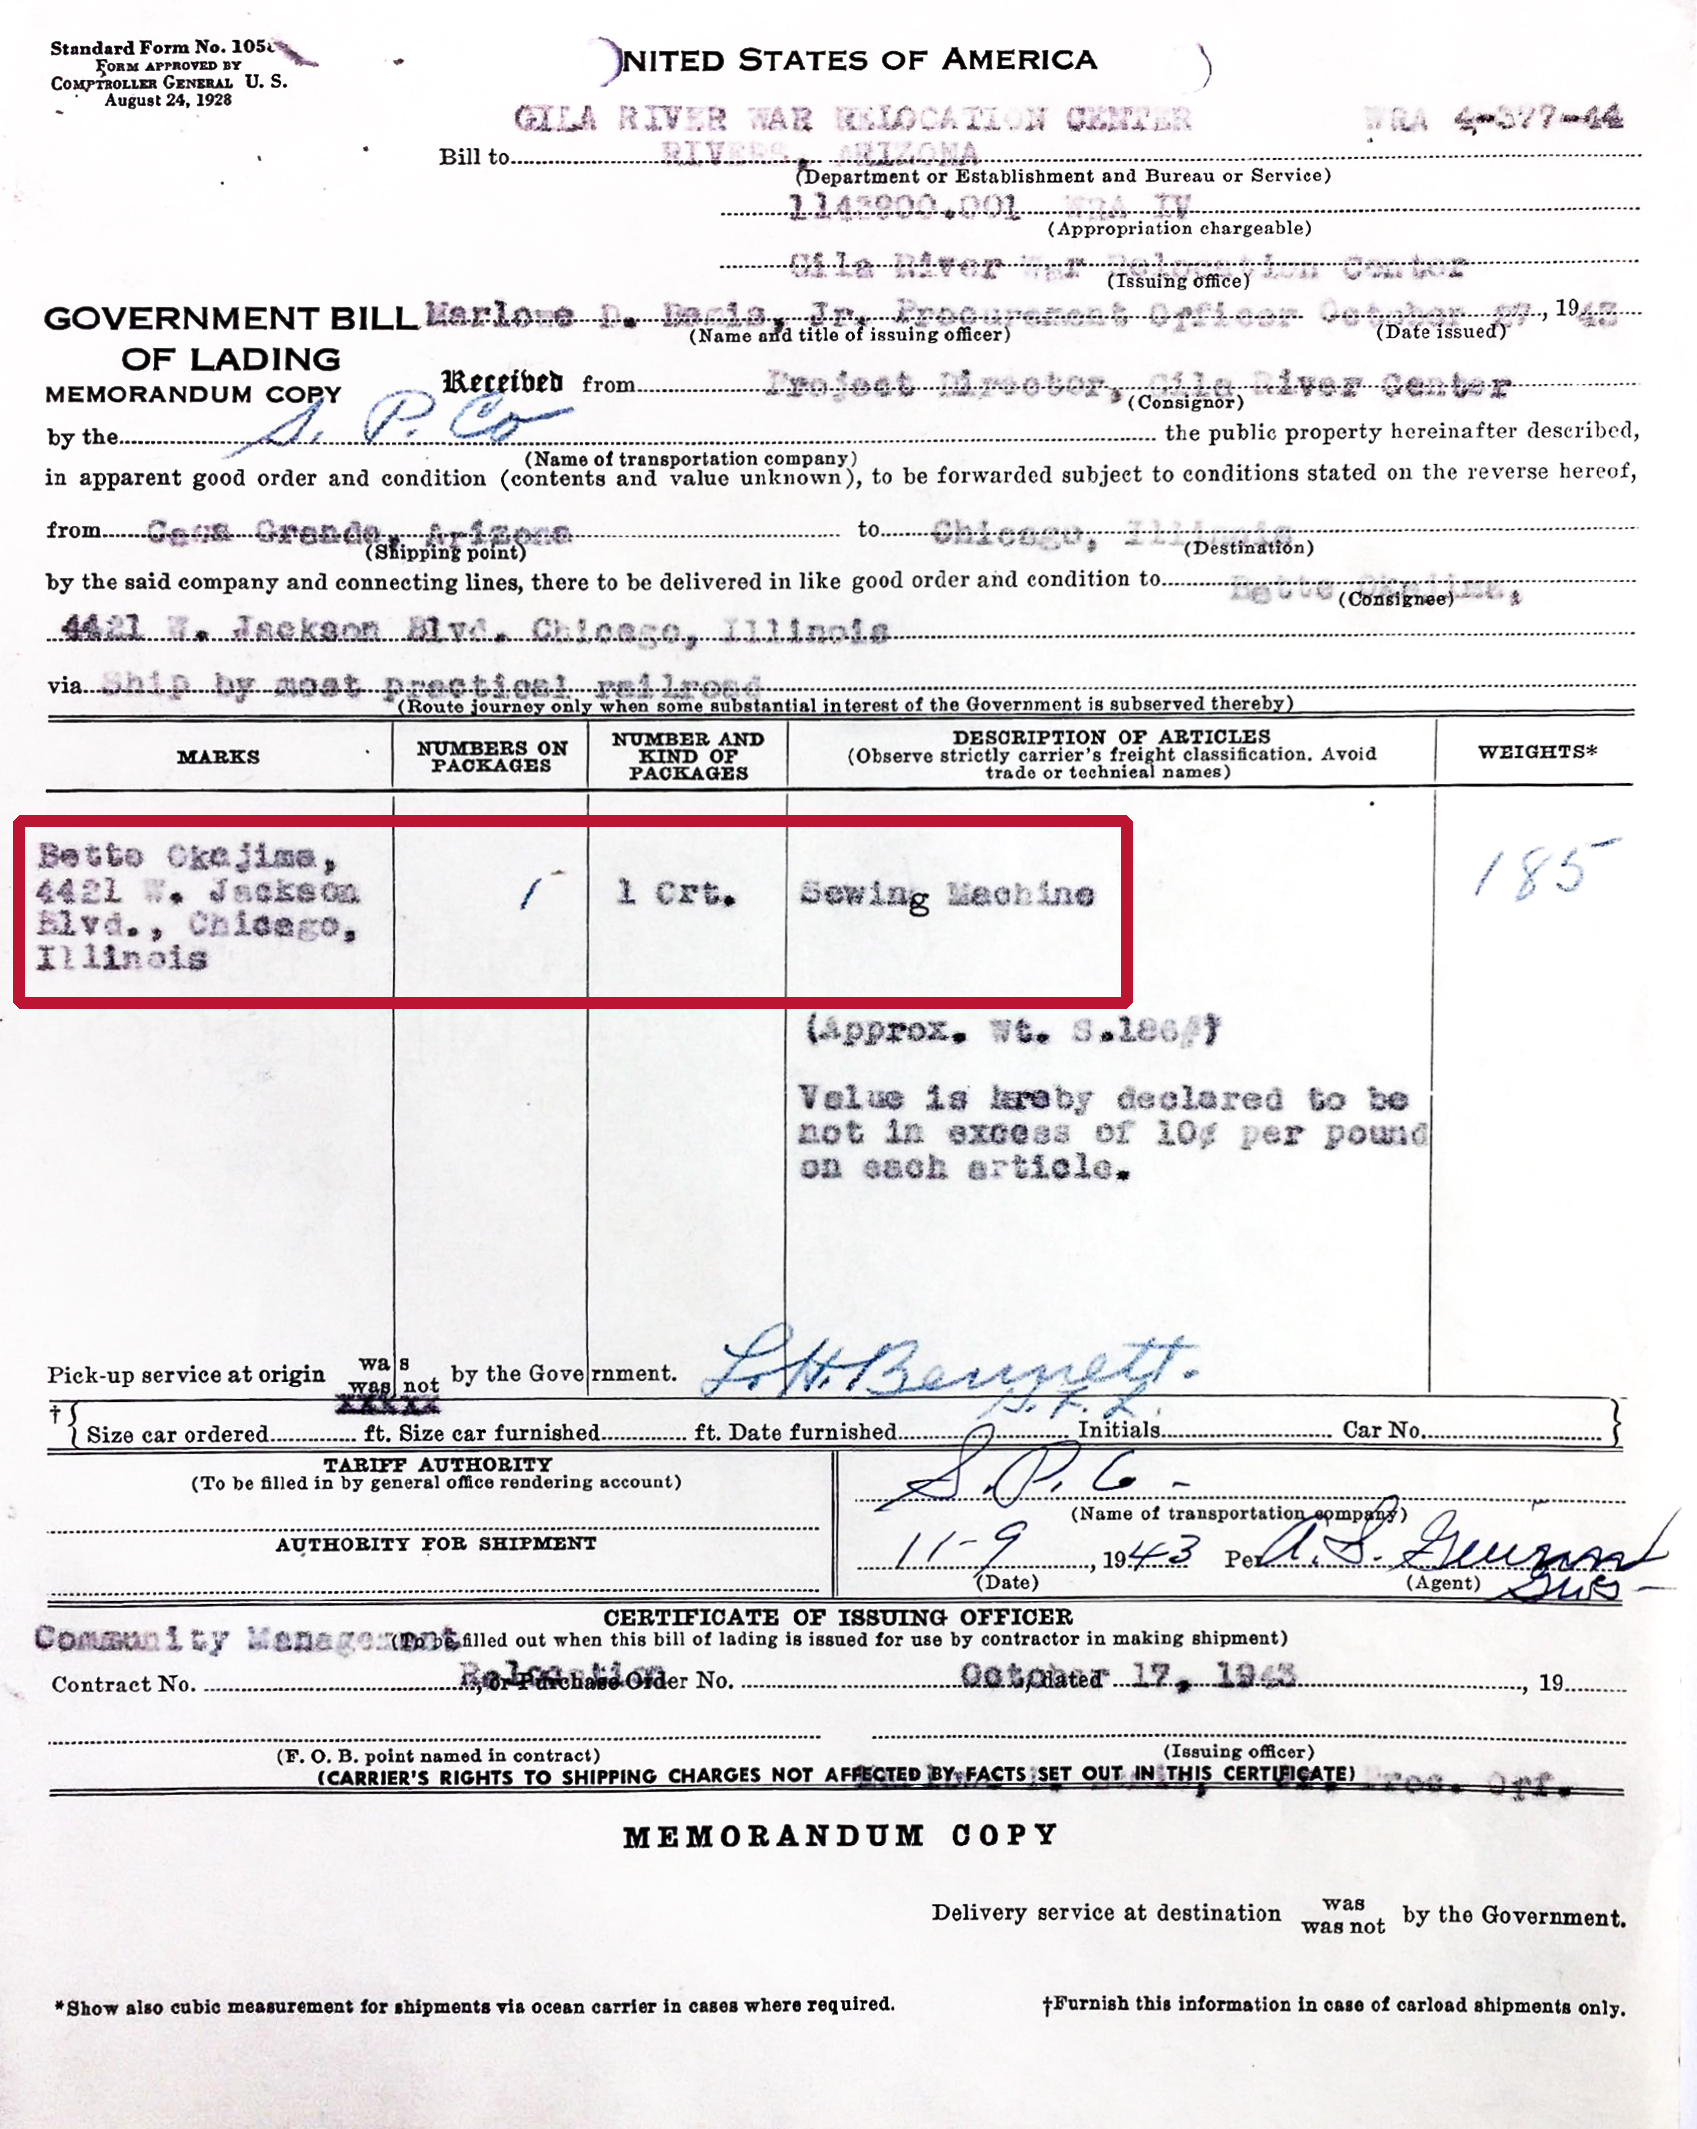 Standard Form No. 105
FORM APPROVED BY
COMPTROLLER GENERAL U. S.
August 24, 1928
UNITED STATES OF AMERICA
GILA RIVER WAR RELOCATION CENTER WRA 4-377-44
Bill to RIVERS, ARIZONA
(Department or Establishment and Bureau or Service)
1143900.001 WRA IV
(Appropriation chargeable)
Gila River War Relocation Center
(Issuing office)
GOVERNMENT BILL
OF LADING
MEMORANDUM COPY
Marlowe D. Jr. Procurement Officer October 27, 1943
(Name and title of issuing officer) (Date issued)
Received from Project Director, Gila River Center
(Consignor)
by the S. P. Co the public property hereinafter described,
(Name of transportation company)
in apparent good order and condition (contents and value unknown), to be forwarded subject to conditions stated on the reverse hereof,
from Casa Grande, Arizona to Chicago, Illinois
(Shipping point) (Destination)
by the said company and connecting lines, there to be delivered in like good order and condition to Bette Okajima,
(Consignee)
4421 W. Jackson Blvd. Chicago, Illinois
via Ship by most practical railroad
(Route journey only when some substantial interest of the Government is subserved thereby)
MARKS
NUMBERS ON
PACKAGES
NUMBER AND
KIND OF
PACKAGES
DESCRIPTION OF ARTICLES
(Observe strictly carrier's freight classification. Avoid
trade or technical names)
WEIGHTS*
Bette Okajima,
4421 W. Jackson
Blvd., Chicago,
Illinois
1
1 Crt.
Sewing Machine
185
(Approx. Wt. S.186#)
Value is hreby declared to be
not in excess of 10¢ per pound
on each article.
Pick-up service at origin was was not by the Government.
L. H. Bennett.
†
Size car ordered ft. Size car furnished ft. Date furnished Initials Car No.
TARIFF AUTHORITY
(To be filled in by general office rendering account)
AUTHORITY FOR SHIPMENT
S. P. Co
(Name of transportation company)
11-9, 1943 Per A. S.
(Date) (Agent)
CERTIFICATE OF ISSUING OFFICER
Community Management (To be filled out when this bill of lading is issued for use by contractor in making shipment)
Contract No. Relocation, or Purchase Order No. October 17, 1943, dated , 19
(F. O. B. point named in contract) (Issuing officer)
(CARRIER'S RIGHTS TO SHIPPING CHARGES NOT AFFECTED BY FACTS SET OUT IN THIS CERTIFICATE) Proc. Off.
MEMORANDUM COPY
Delivery service at destination was was not by the Government.
*Show also cubic measurement for shipments via ocean carrier in cases where required.
†Furnish this information in case of carload shipments only.